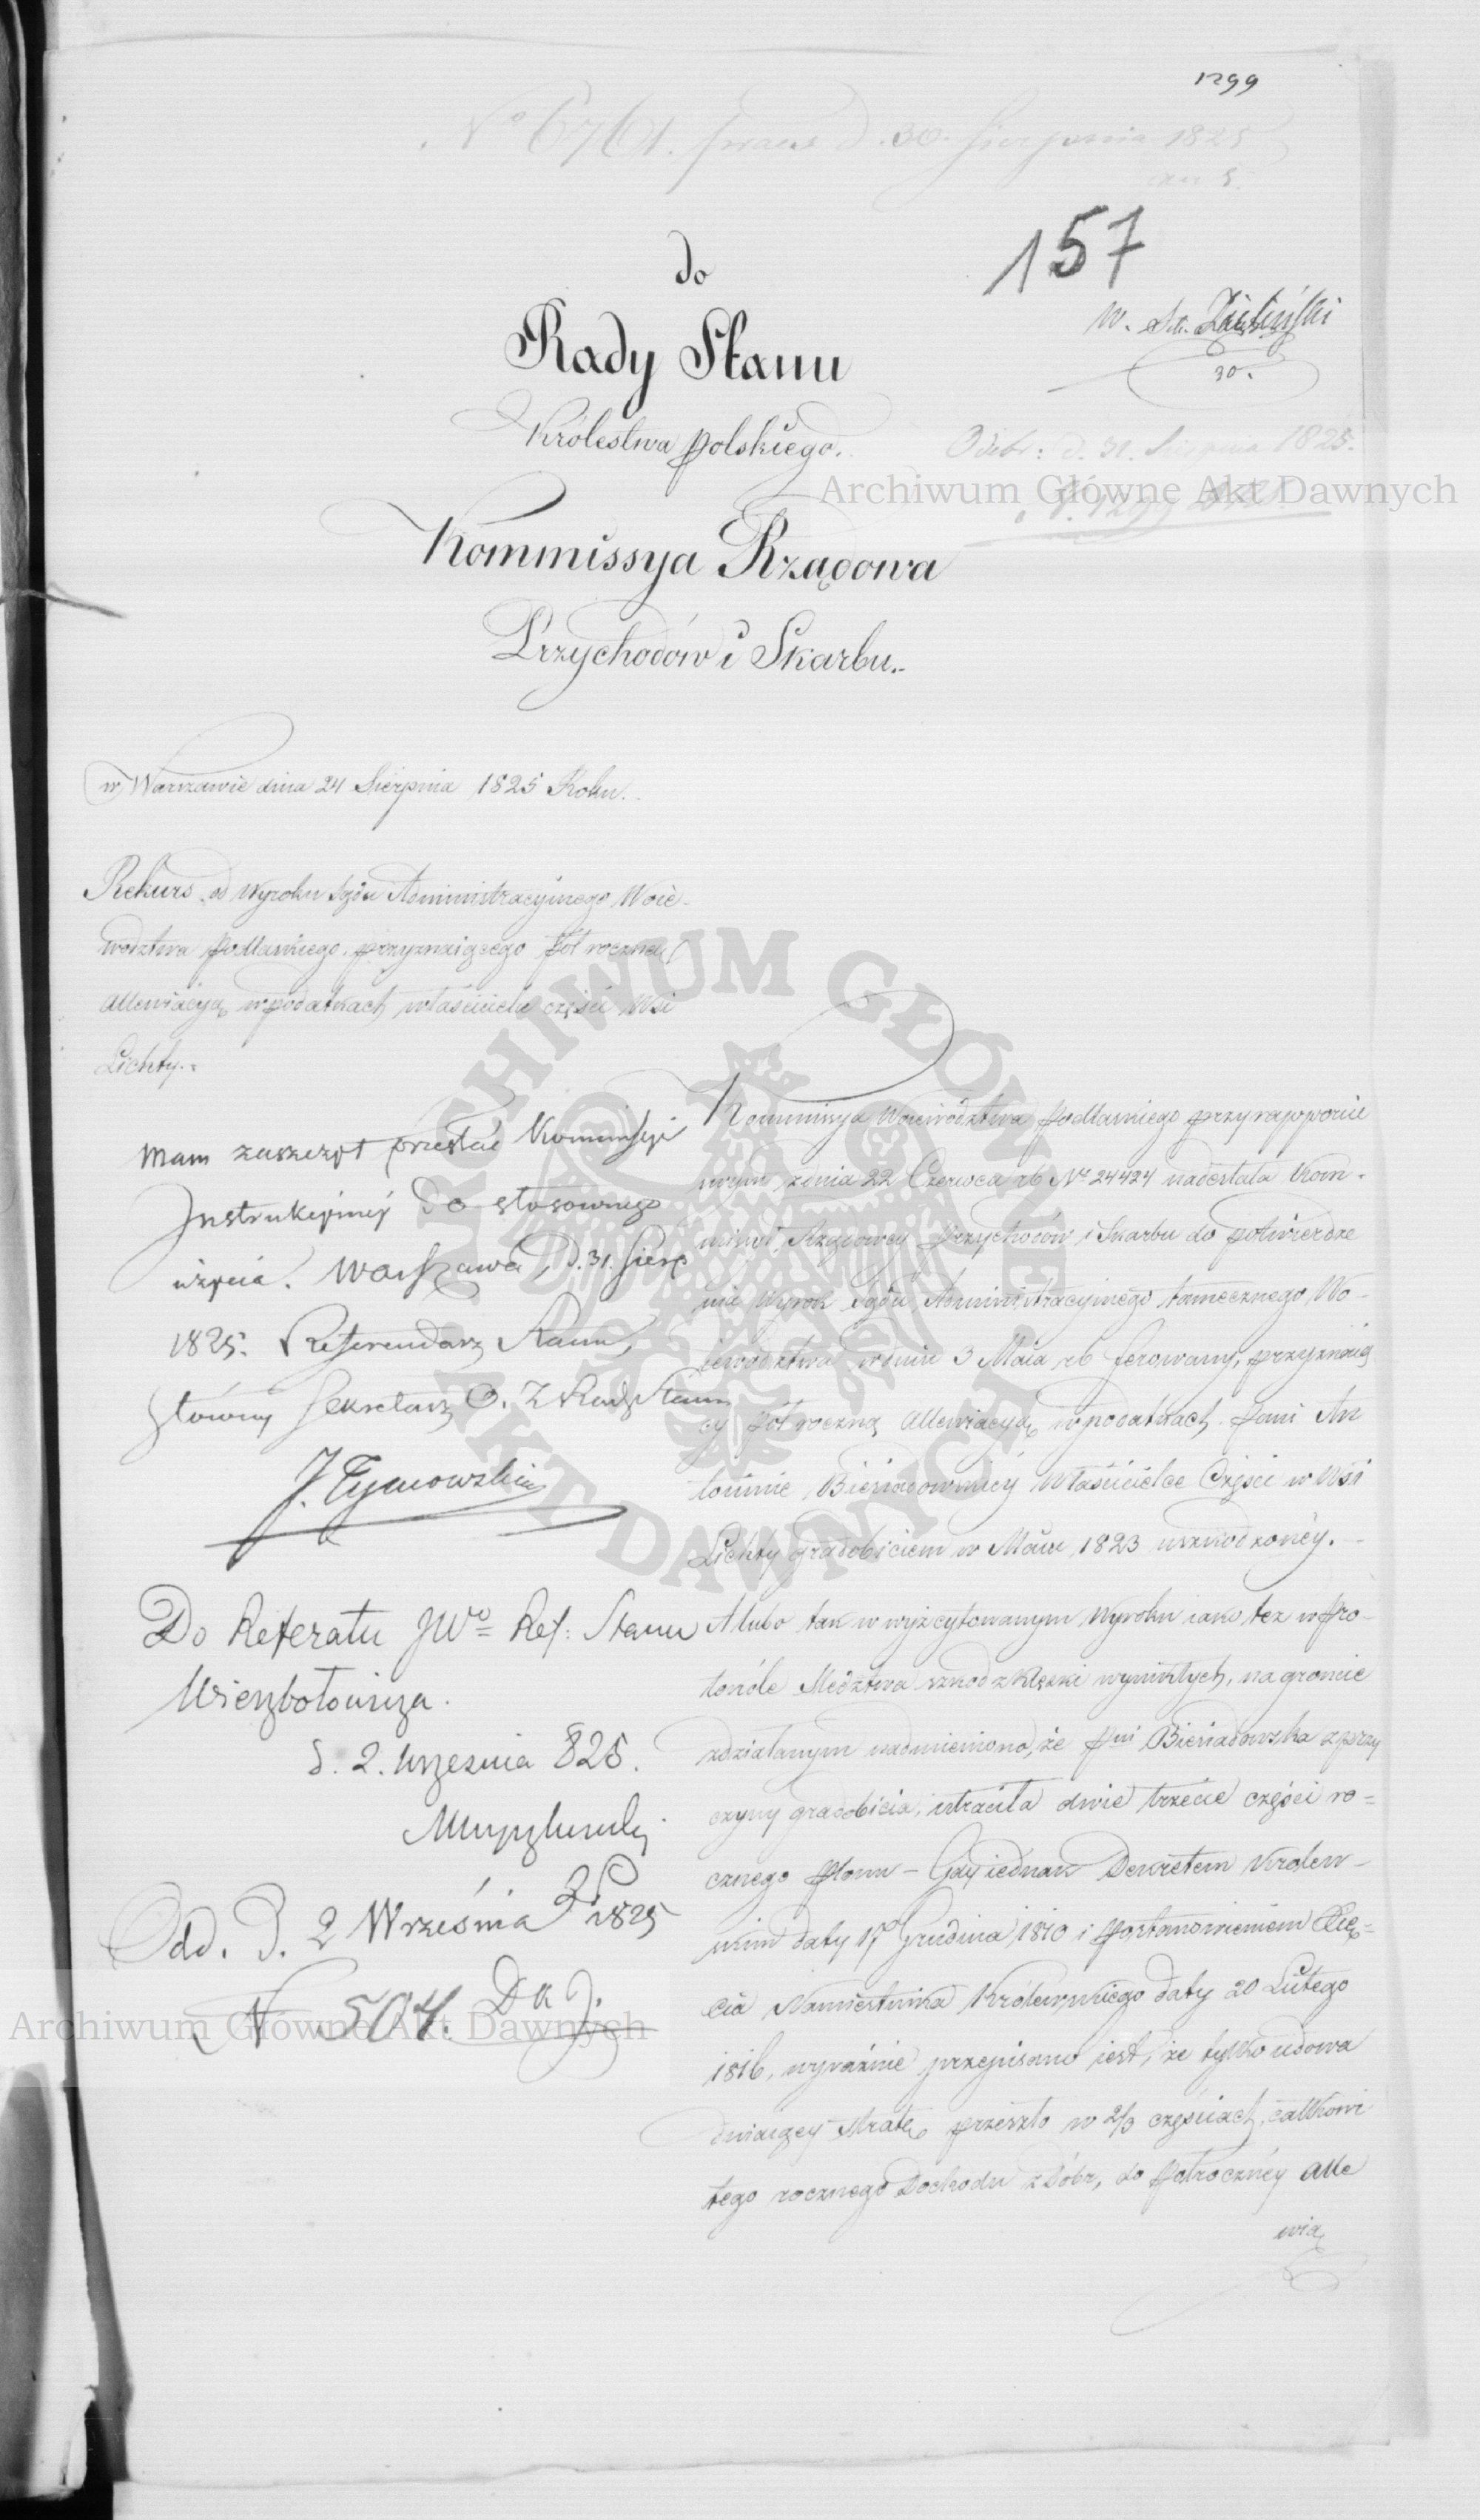 1299
No 6761. praes d. 30. Sierpnia 1825
157
do
Rady Stanu
Królestwa Polskiego.
W. Zieliński
30.
Odebr: d. 31. Sierpnia 1825.
Kommissya Rządowa
Przychodów i Skarbu.
w Warszawie dnia 24 Sierpnia 1825 Roku.
Rekurs od Wyroku Sądu Administracyinego Woie-
wodztwa Podlaskiego, przyznaiącego pół roczną
allewiacyą w podatkach właścicielce części Wsi
Lichty.
Mam zaszczyt przesłać Kommissyi
Instrukcyiney do stosownego
użycia. Warszawa, D. 31. Sierp
1825. Referendarz Stanu,
Główny Sekretarz O. Z. Rady Stanu
J. Tymowski
Do Referatu JWo Ref: Stanu
Wierzbołowicza.
d. 2. Września 825.
Odd. D. 2 Września 1825
N 504.
Kommissya Woiewództwa Podlaskiego przy rapporcie
swym z dnia 22 Czerwca rb No 24424 nadesłała Kom-
missyi Rządowey Przychodów i Skarbu do potwierdze
nia Wyrok Sądu Administracyinego tamecznego Wo-
iewództwa w dniu 3 Maia rb ferowany, przyznaią
cy pół roczną allewiacyą w podatkach Pani An
toninie Biesiadowskiéy Właścicielce Części w Wsi
Lichty gradobiciem w Maiu 1823 uszkodzonéy.
A lubo tak w wyż cytowanym Wyroku iako też w Pro-
tokóle Śledztwa szkod z klęski wynikłych, na gruncie
zdziałanym nadmieniono, że Pni Biesiadowska z przy
czyny gradobicia, utraciła dwie trzecie części ro=
cznego plonu – Gdy iednak Dekretem Królew-
skim daty 17 Grudnia 1810 i Postanowieniem Xię-
cia Namiestnika Królewskiego daty 20 Lutego
1816, wyraźnie przepisano iest, że tylko udowa
dniaiący stratę przeszło w 2/3 częściach całkowi
tego rocznego Dochodu z Dóbr, do półrocznéy alle
wia
Archiwum Główne Akt Dawnych
Archiwum Główne Akt Dawnych
ARCHIWUM GŁÓWNE
AKT DAWNYCH